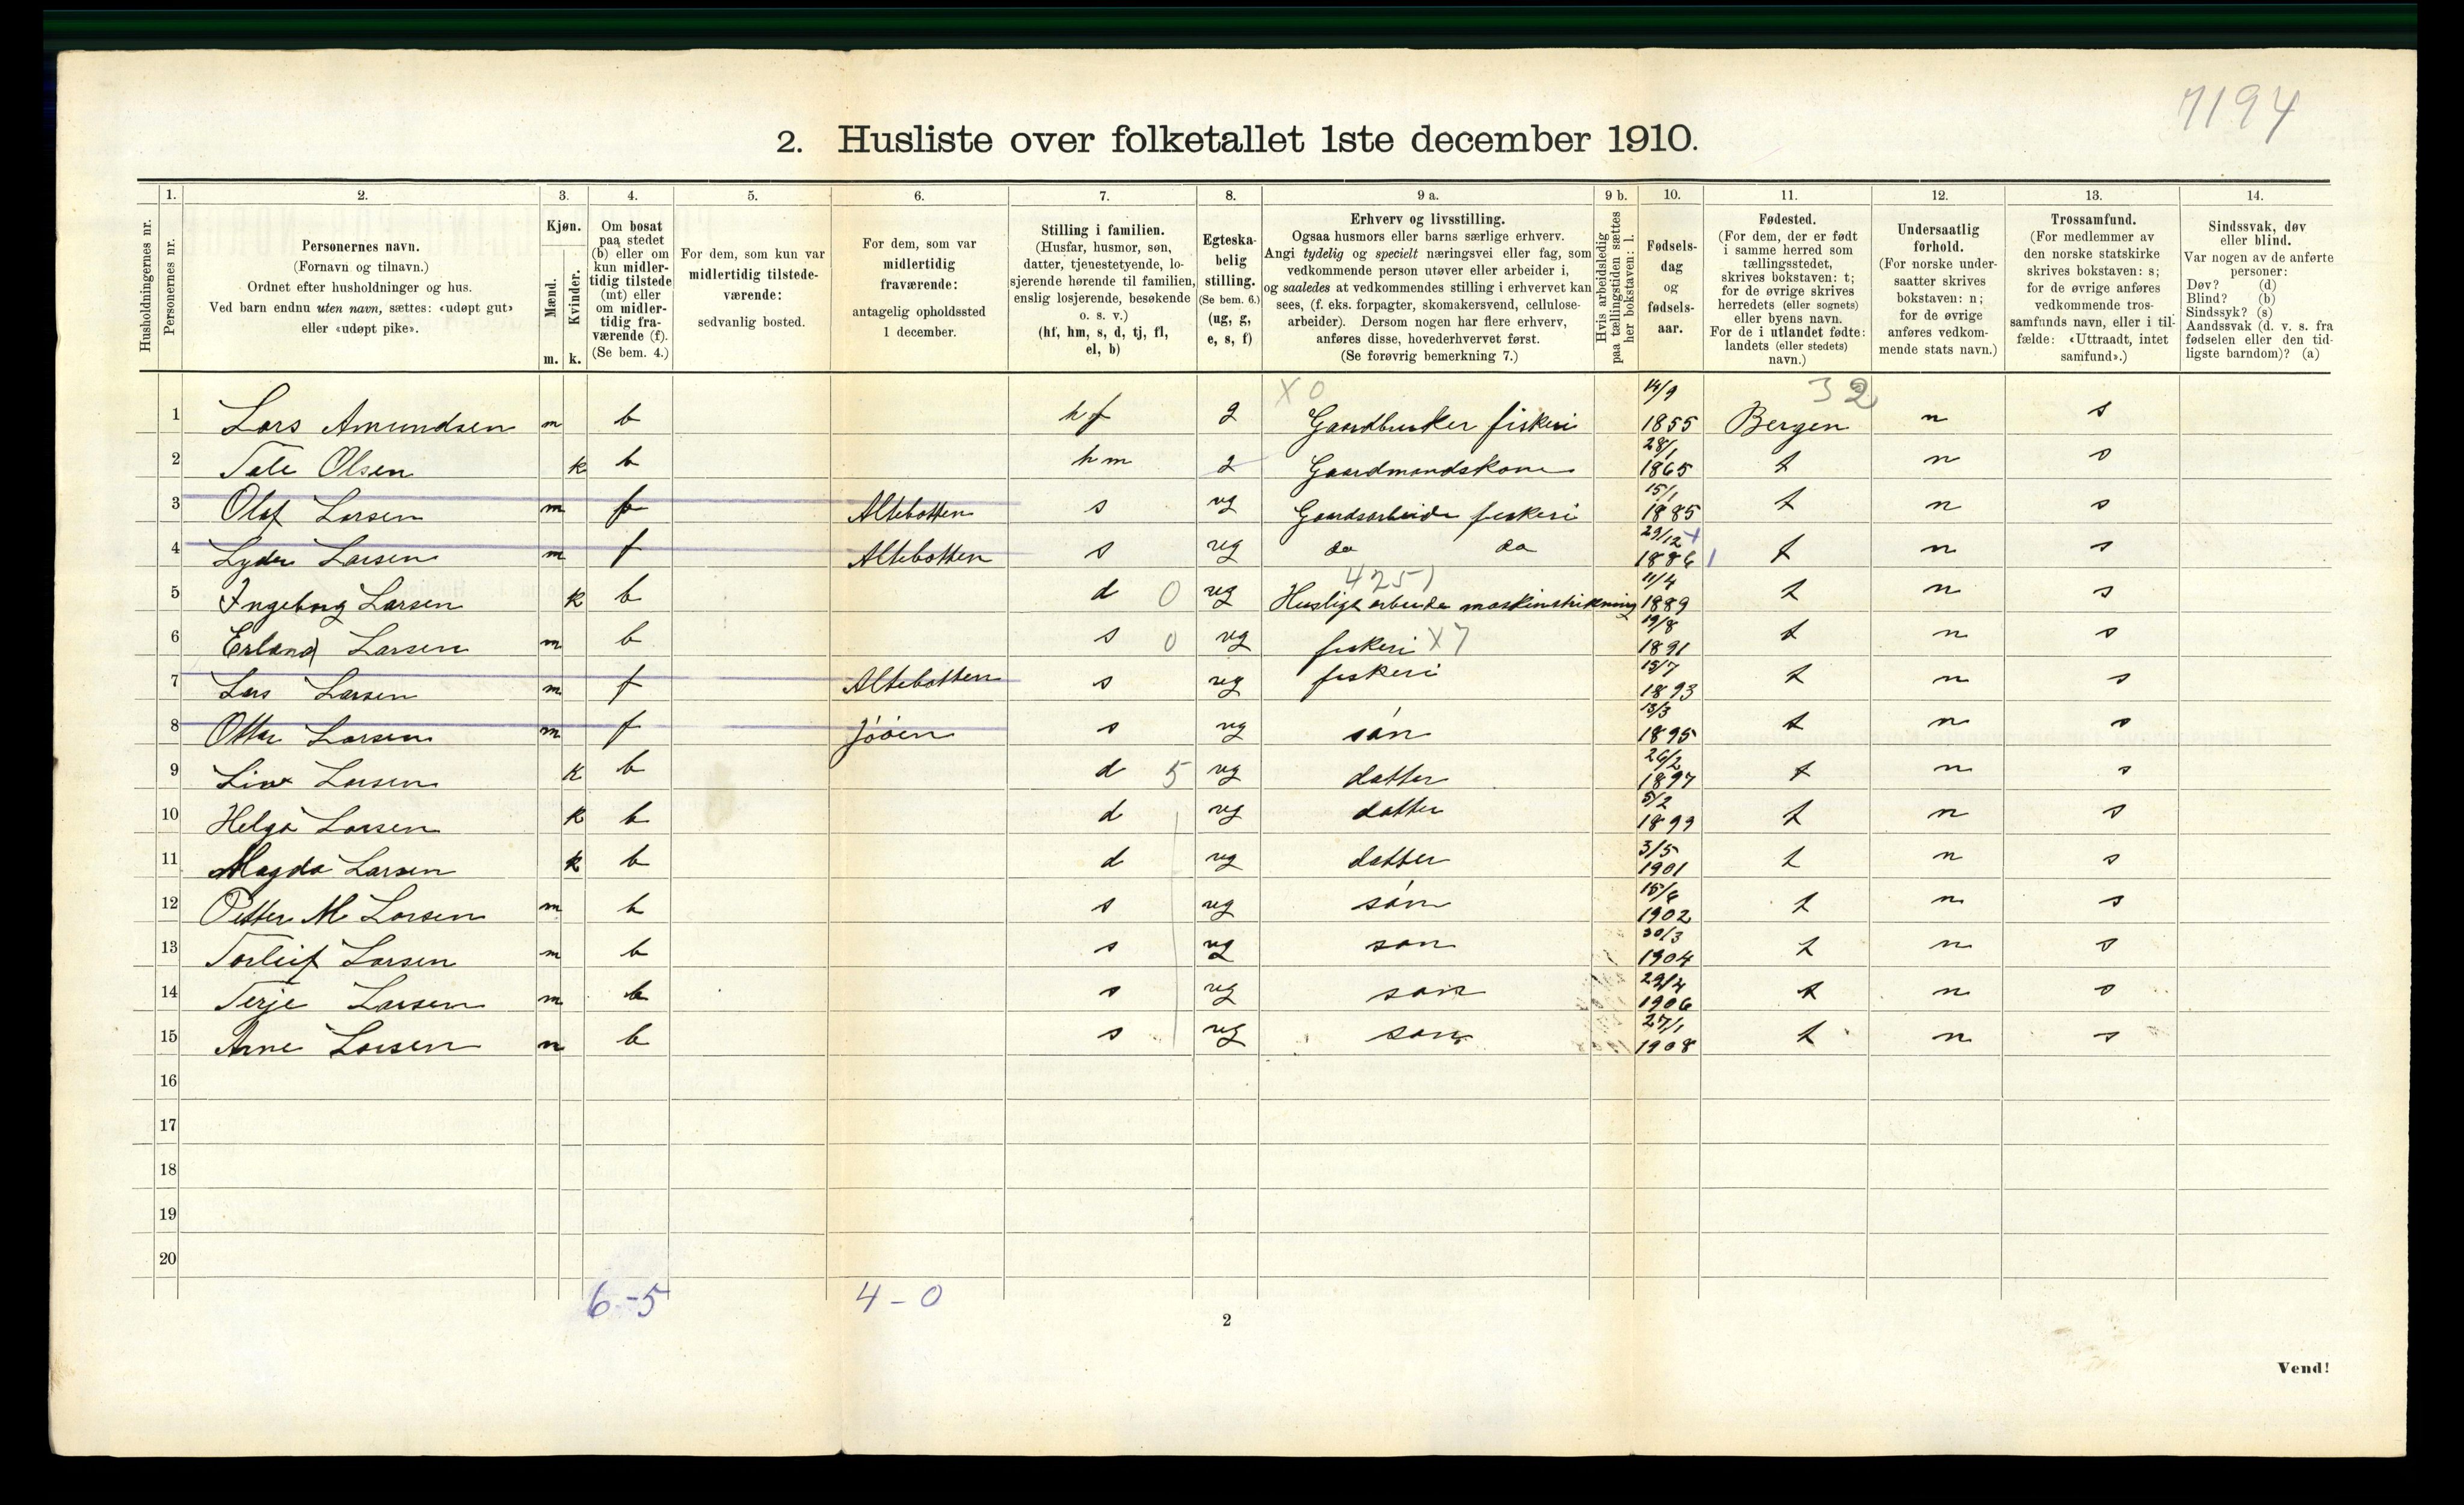 7194
2. Husliste over folketallet 1ste december 1910.
1. 2. 3. 4. 5. 6. 7. 8. 9 a. 9 b. 10. 11. 12. 13. 14.
Husholdningernes nr.
Personernes nr.
Personernes navn.
(Fornavn og tilnavn.)
Ordnet efter husholdninger og hus.
Ved barn endnu uten navn, sættes: «udøpt gut»
eller «udøpt pike».
Kjøn.
Mænd.
Kvinder.
m. k.
Om bosat
paa stedet
(b) eller om
kun midler-
tidig tilstede
(mt) eller
om midler-
tidig fra-
værende (f).
(Se bem. 4.)
For dem, som kun var
midlertidig tilstede-
værende:
sedvanlig bosted.
For dem, som var
midlertidig
fraværende:
antagelig opholdssted
1 december.
Stilling i familien.
(Husfar, husmor, søn,
datter, tjenestetyende, lo-
sjerende hørende til familien,
enslig losjerende, besøkende
o. s. v.)
(hf, hm, s, d, tj, fl,
el, b)
Egteska-
belig
stilling.
(Se bem. 6.)
(ug, g,
e, s, f)
Erhverv og livsstilling.
Ogsaa husmors eller barns særlige erhverv.
Angi tydelig og specielt næringsvei eller fag, som
vedkommende person utøver eller arbeider i,
og saaledes at vedkommendes stilling i erhvervet kan
sees, (f. eks. forpagter, skomakersvend, cellulose-
arbeider). Dersom nogen har flere erhverv,
anføres disse, hovederhvervet først.
(Se forøvrig bemerkning 7.)
Hvis arbeidsledig
paa tællingstiden sættes
her bokstaven: l.
Fødsels-
dag
og
fødsels-
aar.
Fødested.
(For dem, der er født
i samme herred som
tællingsstedet,
skrives bokstaven: t;
for de øvrige skrives
herredets (eller sognets)
eller byens navn.
For de i utlandet fødte:
landets (eller stedets)
navn.)
Undersaatlig
forhold.
(For norske under-
saatter skrives
bokstaven: n;
for de øvrige
anføres vedkom-
mende stats navn.)
Trossamfund.
(For medlemmer av
den norske statskirke
skrives bokstaven: s;
for de øvrige anføres
vedkommende tros-
samfunds navn, eller i til-
fælde: «Uttraadt, intet
samfund».)
Sindssvak, døv
eller blind.
Var nogen av de anførte
personer:
Døv? (d)
Blind? (b)
Sindssyk? (s)
Aandssvak (d. v. s. fra
fødselen eller den tid-
ligste barndom)? (a)
X 0 14/9 32
1 Lars Amundsen m b hf g Gaardbruker fiskeri 1855 Bergen n s
2 Tale Olsen k b hm g Gaardmandskone 28/1 1865 t n s
3 Olaf Larsen m f Altebotten s ug Gaardsarbeide fiskeri 15/1 1885 t n s
4 Lyder Larsen m f Altebotten s ug do do 29/12 1886 t n s
4251
5 Ingeborg Larsen k b d 0 ug Huslige arbeide maskinstrikning 11/4 1889 t n s
6 Erland Larsen m b s 0 ug fiskeri X7 19/8 1891 t n s
7 Lars Larsen m f Altebotten s ug fiskeri 15/7 1893 t n s
8 Ottar Larsen m f s ug søn 13/3 1895 t n s
9 Larsen k b d 5 ug datter 26/2 1897 t n s
10 Helga Larsen k b d ug datter 5/2 1899 t n s
11 Magda Larsen k b d ug datter 3/5 1901 t n s
12 Petter M Larsen m b s ug søn 15/6 1902 t n s
13 Torleif Larsen m b s ug søn 30/3 1904 t n s
14 Terje Larsen m b s ug søn 29/4 1906 t n s
15 Arne Larsen m b s ug søn 27/1 1908 t n s
16
17
18
19
20
6-5 4-0
2
Vend!